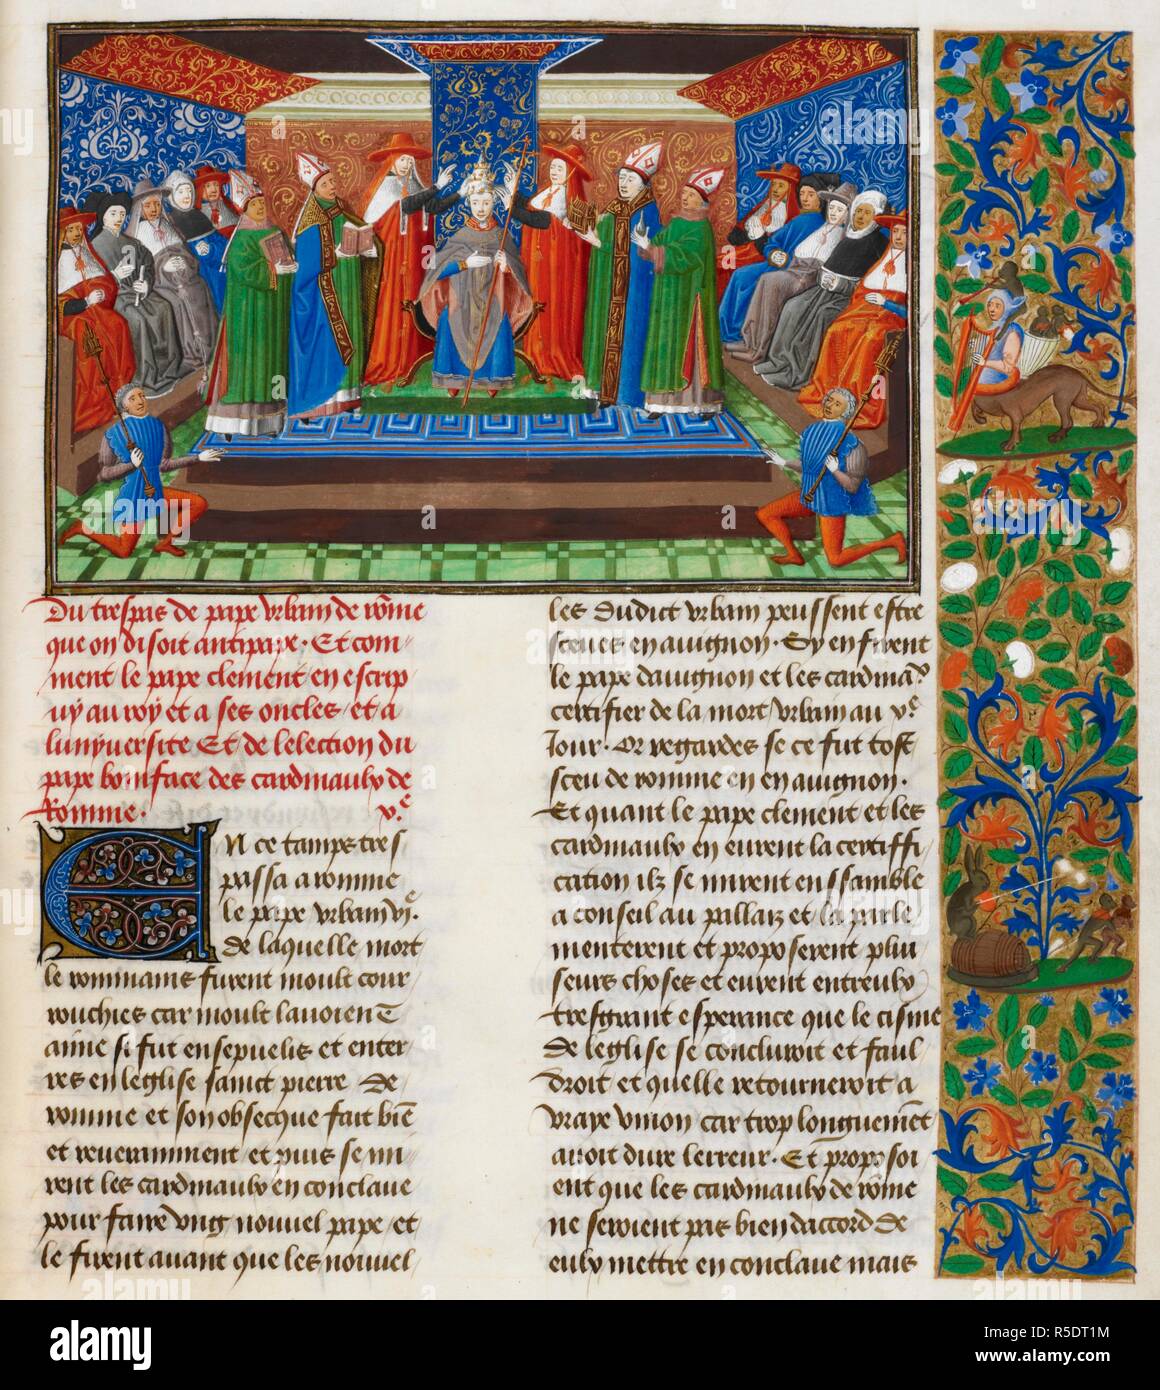 Du trespas de pape urbain de rõme
que on disoit antipape. Et com
ment le pape clement en escrip
vy au roy et a ses oncles / et a
lunyversite Et de lelection du
pape boniface des cardinaulx de
Romme. v.ᶜ
En ce tamps tres
passa a romme
le pape urbain vjᵉ.
de laquelle mort
le rommains furent moult cour
rouchies car moult lavoient
aime si fut ensepvelis et enter
res en leglise sainct pierre de
romme et son obsecque fait biẽ
et reveramment et puis se mi
rent les cardinaulx en conclave
pour faire ung nouvel pape / et
le firent avant que les nouvel
les dudict urbain peussent estre
sceues en avignon. Sy en furent
le pape davignon et les cardinaᵘˣ
certifier de la mort urbain au vᵉ
Jour. Or regardes se ce fut tost
sceu de romme en en avignon.
Et quant le pape clement et les
cardinaulx en eurent la certiffi
cation ilz se mirent enssamble
a conseil au pallaiz et la parle
menterent et proposerent plui
seurs choses et eurent entreulx
tresgrant esperance que le cisme
de leglise se concluroit et faul
droit et quelle retourneroit a
vraye union car trop longuemẽt
avoit dure lerreur. Et proposoi
ent que les cardinaulx de rõme
ne seroient pas bien daccord de
eulx mettre en conclave mais
alamy
Image ID: R5DT1M
www.alamy.com